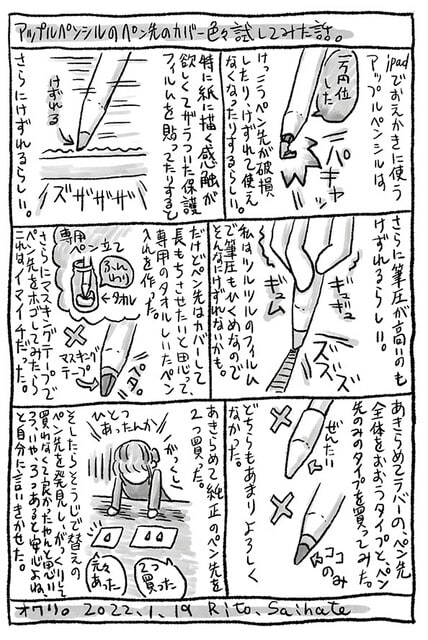 アップルペンシルのペン先のカバー色々試してみた話。
ipadでおえかきに使う
アップルペンシルは、
一万円位
した
パキャ
けっこうペン先が破損
したり、けずれて使え
なくなったりするらしい。
特に紙に描く感触が
欲しくてザラついた保護
フィルムを貼ってたりすると
けずれる
ズザザザザ
さらにけずれるらしい。
さらに筆圧が高いのも
けずれるらしい。
ギュギュ
ギュム
ズズズ
私はツルツルのフィルム
で筆圧もひくめなので
そんなにけずれないかも。
だけどペン先はカバーして
長もちさせたいと思って、
専用のタオルしいたペン
入れを作った。
専用
ペン立て
ふんわり
タオル
さらにマスキングテープで
ペン先をホゴしてみたら
これはイマイチだった。
マスキング
テープ
ペタ。
あきらめてラバーの、ペン先
全体をおおうタイプと、ペン
先のみのタイプを買ってみた。
ぜんたい
ココ
のみ
どちらもあまりよろしく
なかった。
あきらめて純正のペン先を
2つ買った。
がっくし
ひとつ
あったんか
2つ
買った
元々
あった
そしたらそうじで替えの
ペン先を発見し、がっくりして
買わなくも良かったやんと思い、
と自分に言いきかせた。
オワリ。2022.1.19 Rito.Saihate